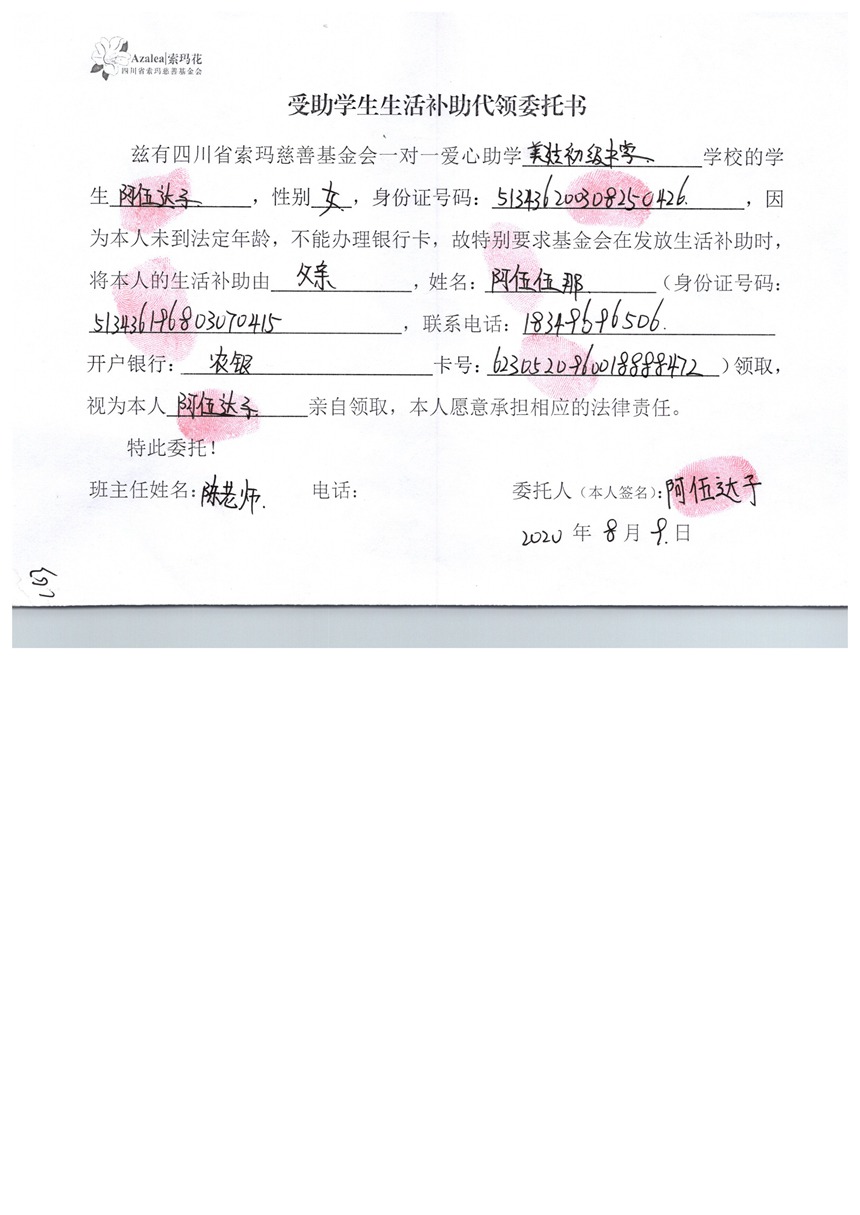 Azalea|索玛花
四川省索玛慈善基金会
受助学生生活补助代领委托书
兹有四川省索玛慈善基金会一对一爱心助学 美姑初级中学 学校的学
生 阿伍达子 ，性别 女 ，身份证号码： 513436200308250426 ，因
为本人未到法定年龄，不能办理银行卡，故特别要求基金会在发放生活补助时，
将本人的生活补助由 父亲 ，姓名： 阿伍伍那 （身份证号码：
513436196803070415 ，联系电话： 18349696506
开户银行： 农银 卡号： 6230520960018888472 ）领取，
视为本人 阿伍达子 亲自领取，本人愿意承担相应的法律责任。
特此委托！
班主任姓名：陈老师. 电话： 委托人（本人签名）：阿伍达子
2020 年 8 月 9 日